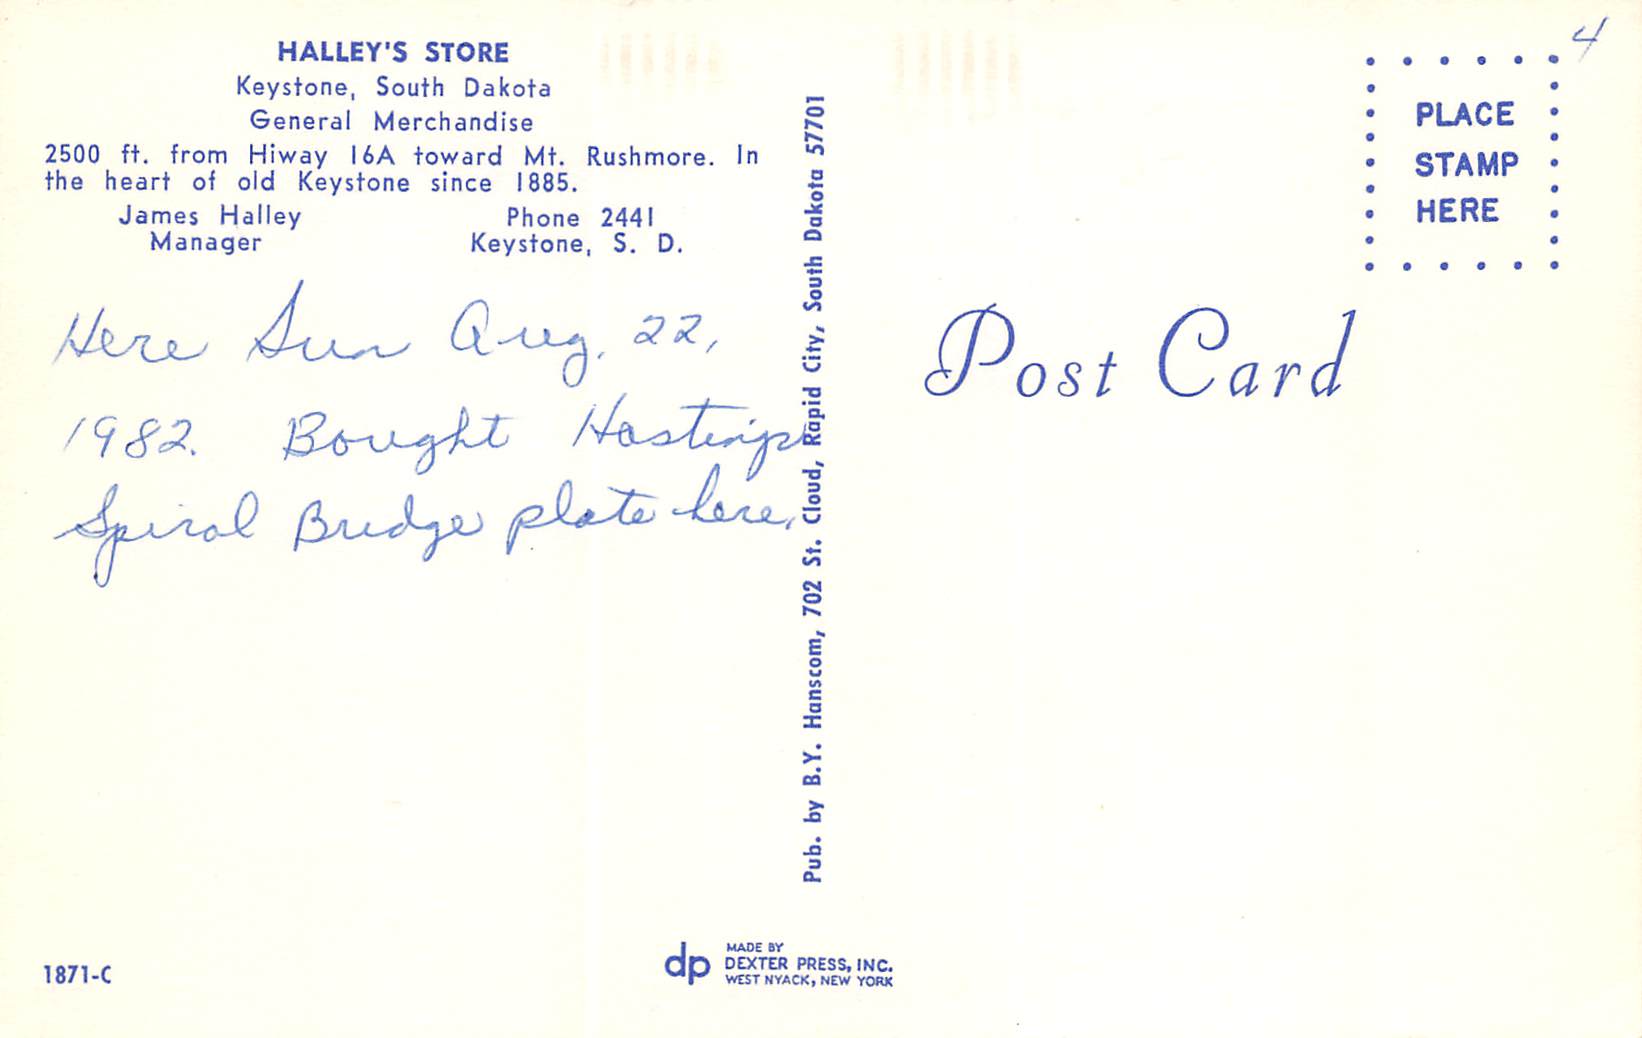 HALLEY'S STORE
Keystone, South Dakota
General Merchandise
2500 ft. from Hiway 16A toward Mt. Rushmore. In
the heart of old Keystone since 1885.
James Halley
Manager
Phone 2441
Keystone, S. D.
Here Sun Aug. 22,
1982. Bought Hastings
Spiral Bridge plate here.
1871-C
Pub. by B.Y. Hanscom, 702 St. Cloud, Rapid City, South Dakota 57701
dp
MADE BY
DEXTER PRESS, INC.
WEST NYACK, NEW YORK
4
PLACE
STAMP
HERE
Post Card